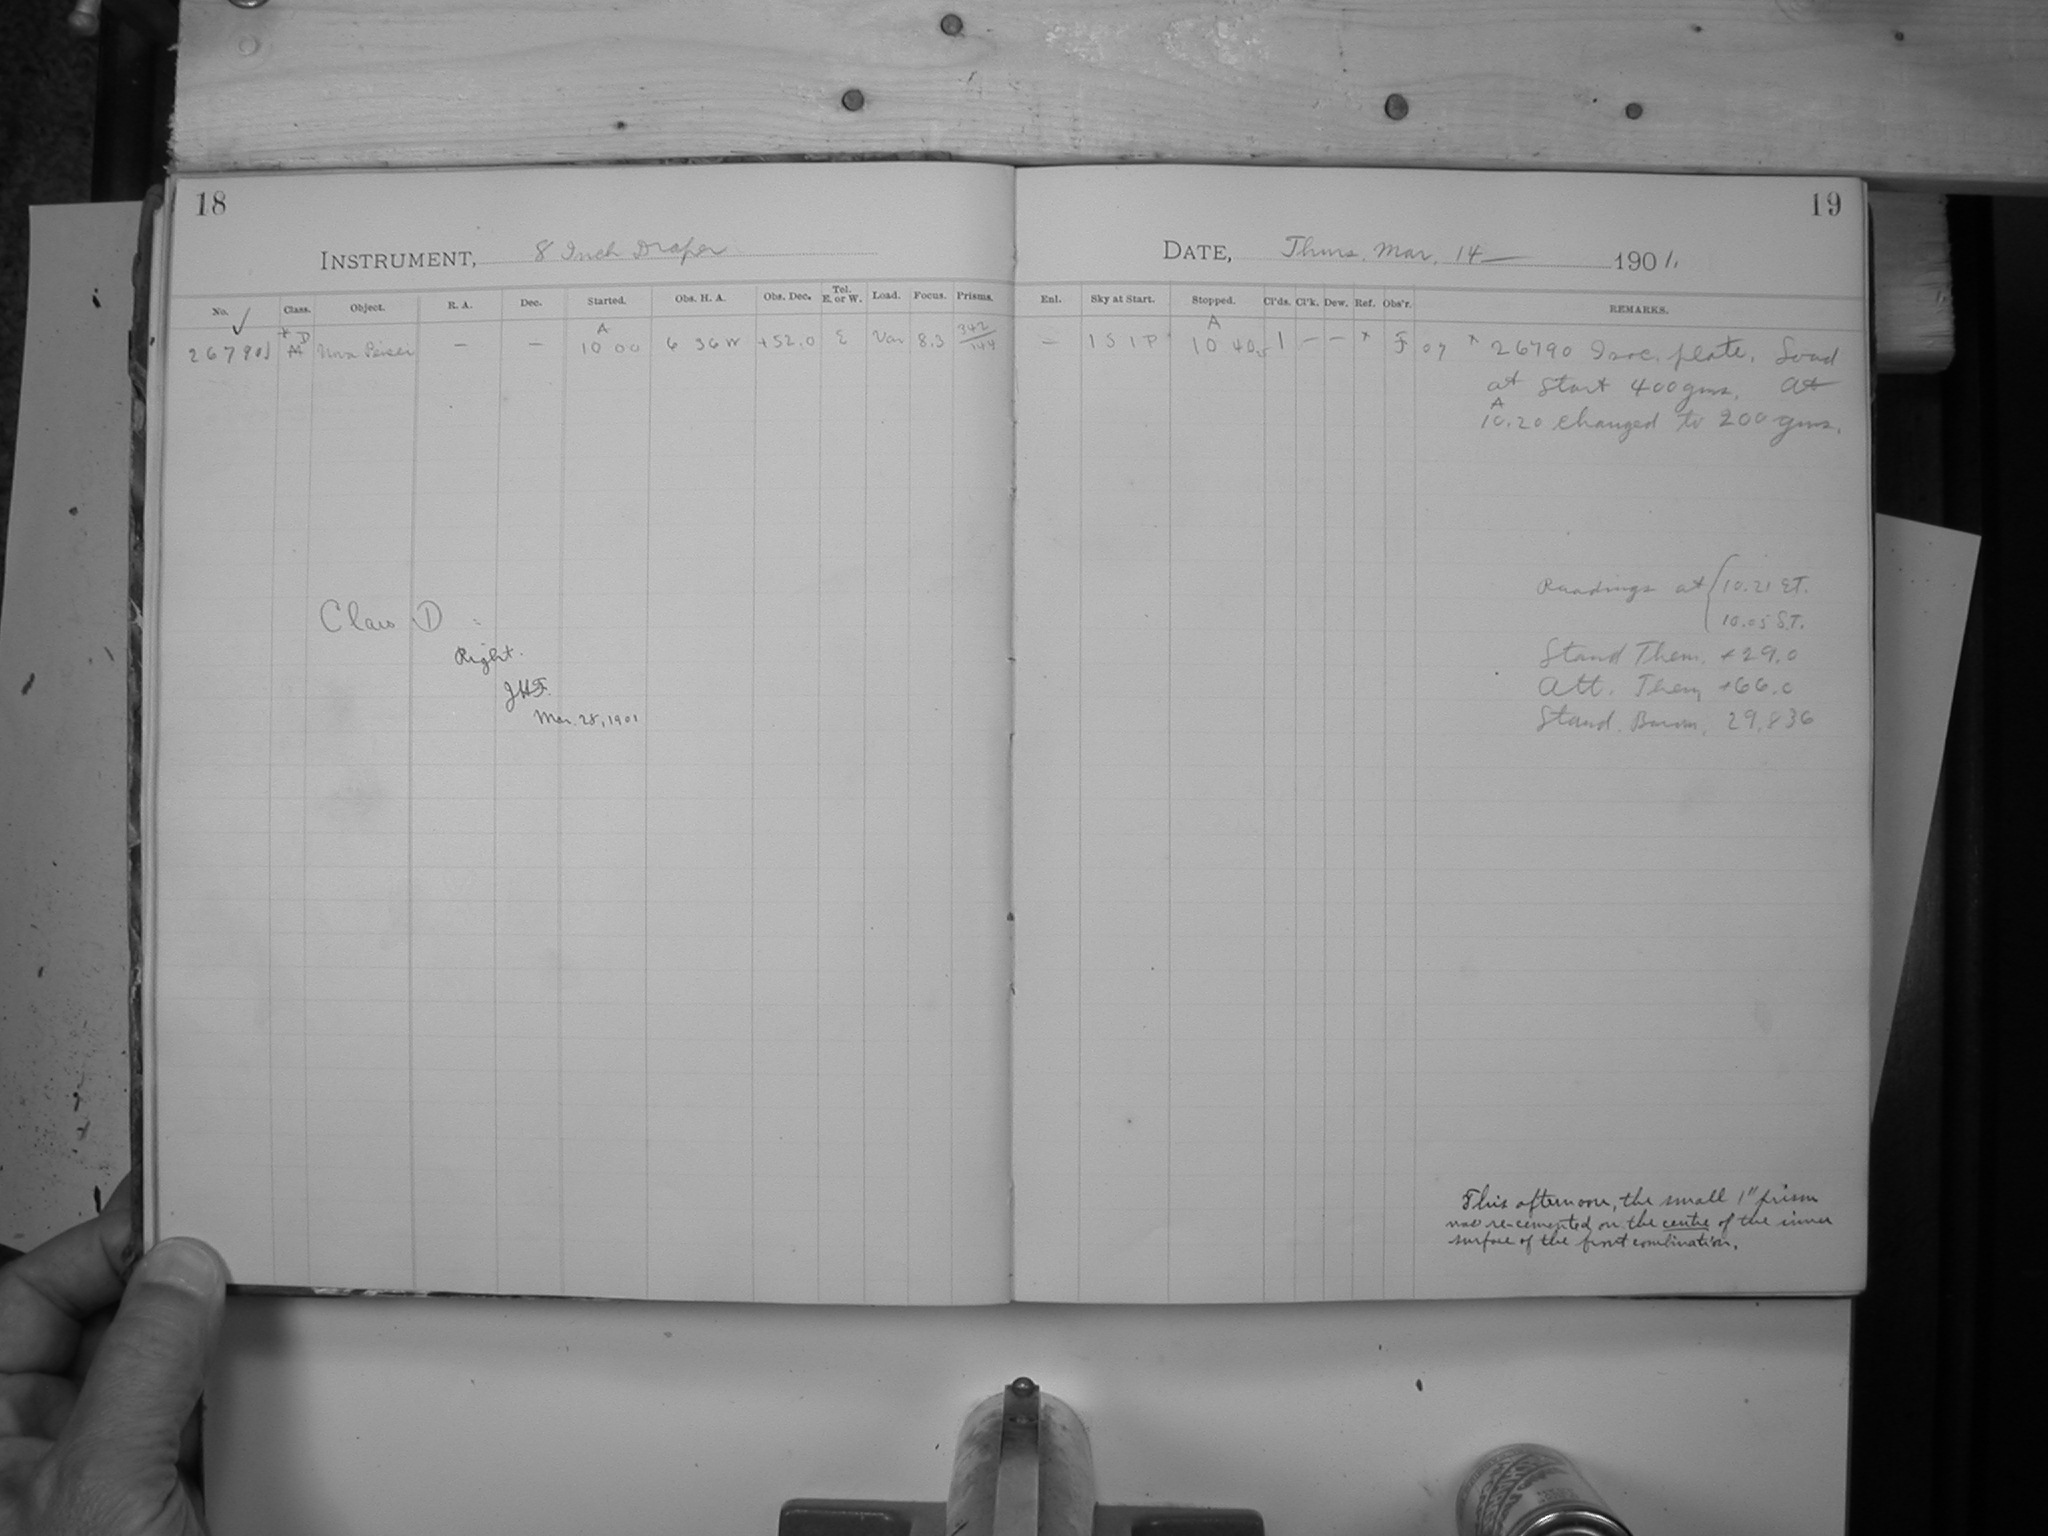 18
INSTRUMENT, 8 Inch Draper
No. Class. Object. R. A. Dec. Started. Obs. H. A. Obs. Dec. Tel. E. or W. Load. Focus. Prisms.
26790 A D Nova Persei — — A 10 00 6 36 W +52.0 E Var 8.3 342/144
Class D
Right.
JHF.
Mar. 28, 1901
19
DATE, Thurs. Mar. 14 — 1901.
Enl. Sky at Start. Stopped. Cl'ds. Cl'k. Dew. Ref. Obs'r. REMARKS.
— 1 S 1 P A 10 40 1 — — x F 07 x 26790 Isoc. plate. Load
at start 400 gms. At
A 10.20 changed to 200 gms.
Readings at 10.21 ET.
10.05 S.T.
Stand Therm. +29.0
Att. Therm +66.0
Stand. Barom. 29.836
This afternoon, the small 1" prism
was re-cemented on the centre of the inner
surface of the front combination.